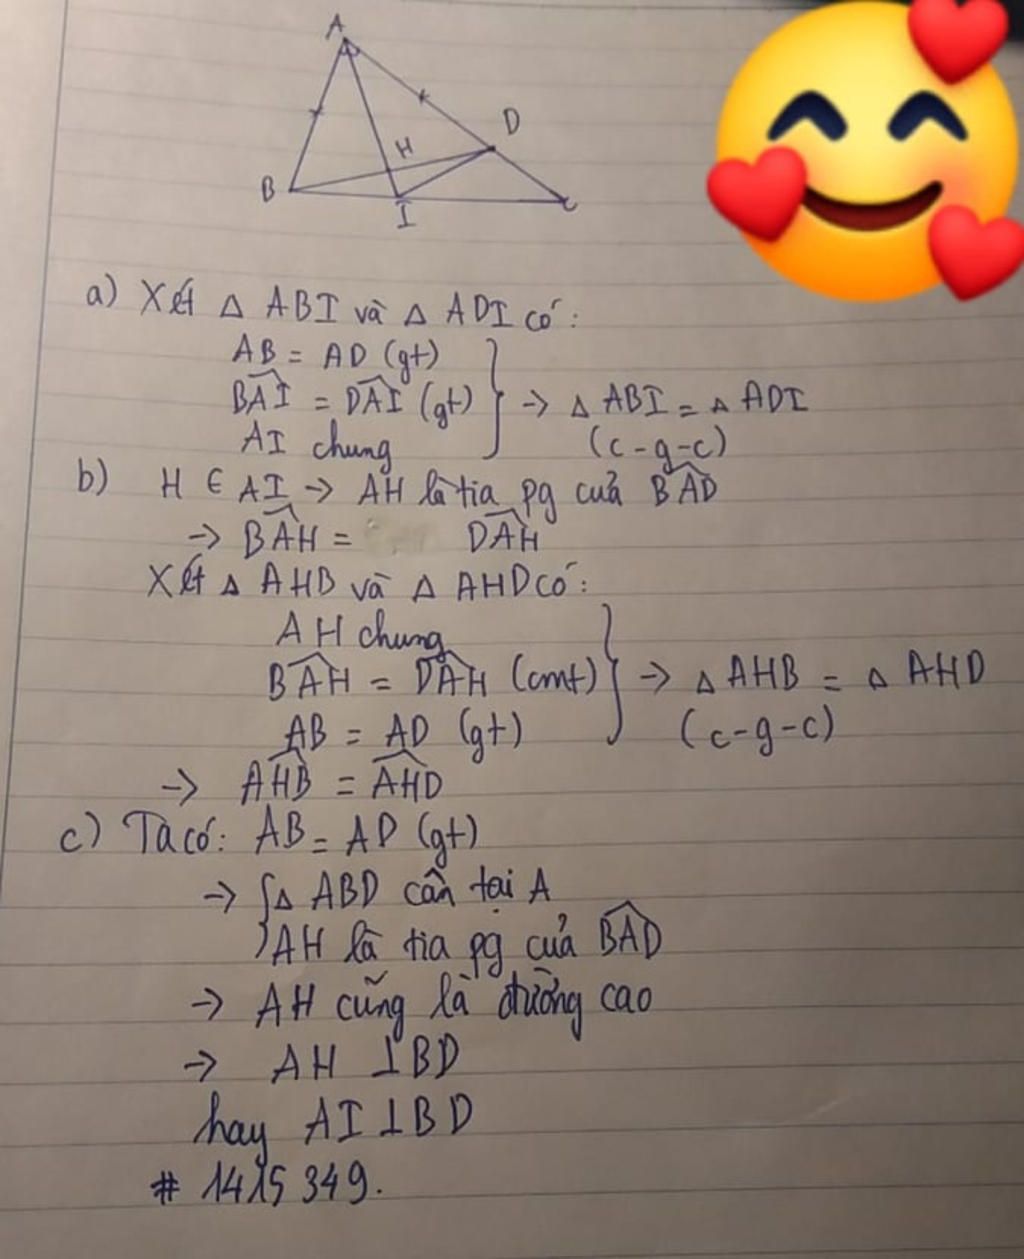 A
D
H
B
I
C
a) Xét △ ABI và △ ADI có:
AB = AD (gt)
B̂AI = D̂AI (gt) } → △ ABI = △ ADI
AI chung (c-g-c)
b) H ∈ AI → AH là tia pg của B̂AD
→ B̂AH = D̂AH
Xét △ AHB và △ AHD có:
AH chung
B̂AH = D̂AH (cmt) } → △ AHB = △ AHD
AB = AD (gt) (c-g-c)
→ ÂHB = ÂHD
c) Ta có: AB = AD (gt)
→ { △ ABD cân tại A
AH là tia pg của B̂AD
→ AH cũng là đường cao
→ AH ⊥ BD
hay AI ⊥ BD
# 1415349.